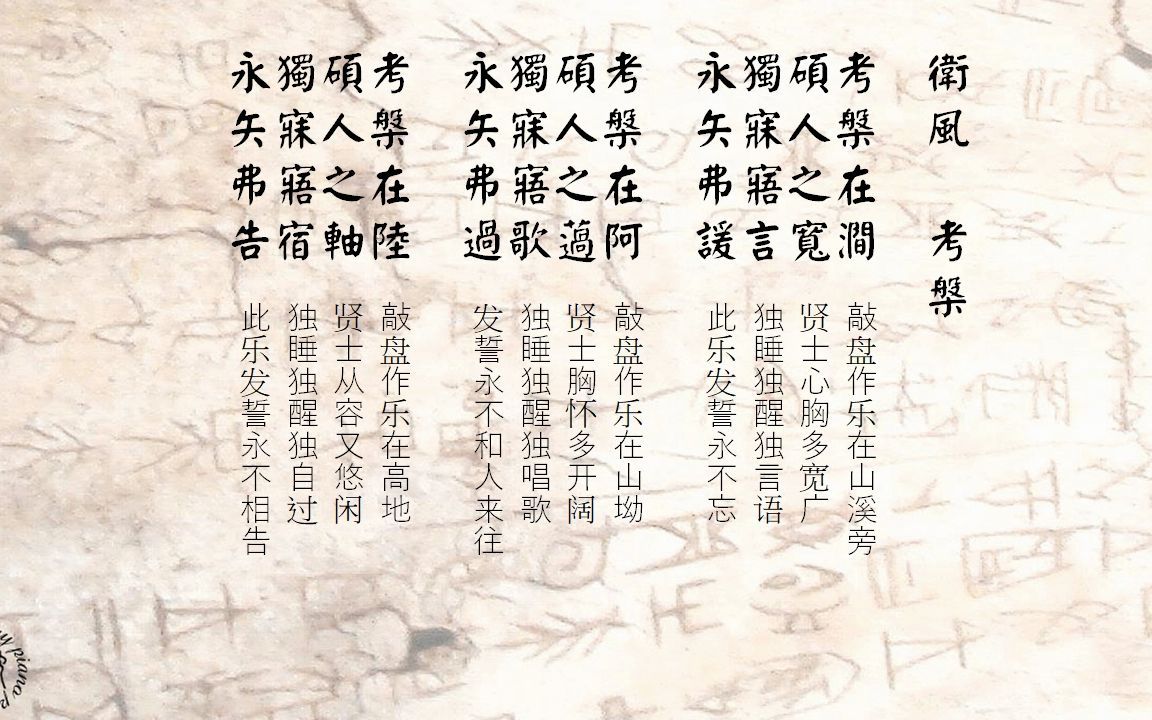 衛風 考槃
考槃在澗
碩人之寬
獨寐寤言
永矢弗諼
敲盘作乐在山溪旁
贤士心胸多宽广
独睡独醒独言语
此乐发誓永不忘
考槃在阿
碩人之薖
獨寐寤歌
永矢弗過
敲盘作乐在山坳
贤士胸怀多开阔
独睡独醒独唱歌
发誓永不和人来往
考槃在陸
碩人之軸
獨寐寤宿
永矢弗告
敲盘作乐在高地
贤士从容又悠闲
独睡独醒独自过
此乐发誓永不相告
piano